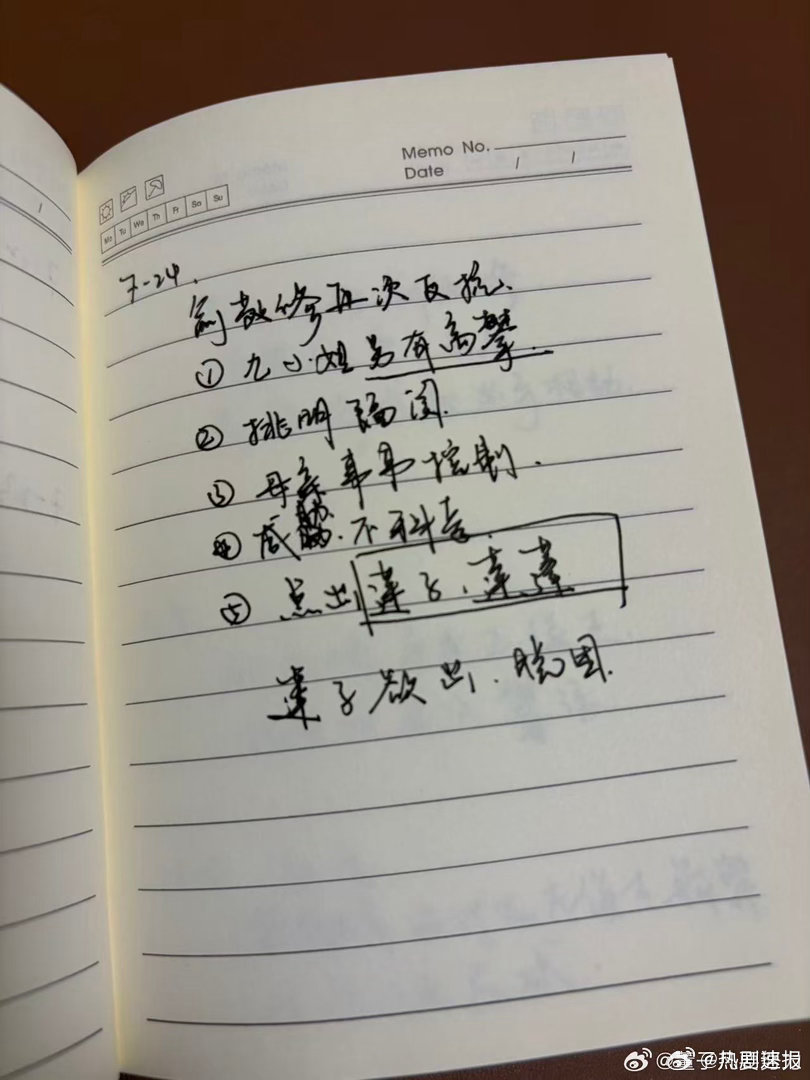 Memo No.
Date / /
Mo Tu We Th Fr Sa Su
7-24.
俞敖修再次反抗.
① 九小姐另有高攀.
② 挑明隔阂.
③ 母亲事事控制.
④ 威胁.不科考.
⑤ 点出莲子.莲蓬
莲子欲出.脱困.
@热剧速报